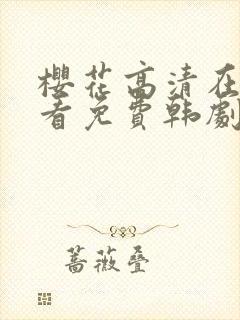 樱花高清在
看免费韩剧
蔷薇叠